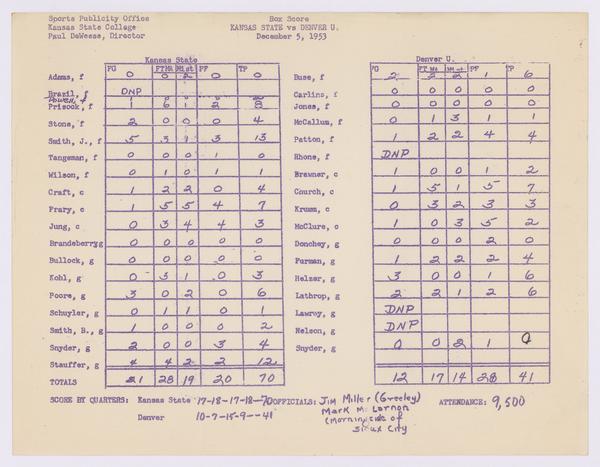 Sports Publicity Office
Kansas State College
Paul DeWeese, Director
Box Score
KANSAS STATE vs DENVER U.
December 5, 1953
Kansas State
FG FTMA Mist PF TP
Adams, f 0 0 2 0 0
Brazil, f DNP
Powell, f
Prisock, f 1 6 1 2 8
Stone, f 2 0 0 0 4
Smith, J., f 5 3 1 3 13
Tangeman, f 0 0 0 1 0
Wilson, f 0 1 0 1 1
Craft, c 1 2 2 0 4
Prary, c 1 5 5 4 7
Jung, c 0 3 4 4 3
Brandeberry g 0 0 0 0 0
Bullock, g 0 0 0 0 0
Kohl, g 0 3 1 0 3
Poore, g 3 0 2 0 6
Schuyler, g 0 1 1 0 1
Smith, B., g 1 0 0 0 2
Snyder, g 2 0 0 3 4
Stauffer, g 4 4 2 2 12
TOTALS 21 28 19 20 70
Denver U.
FG FT MA PF TP
Buse, f 2 2 2 1 6
Carlins, f 0 0 0 0 0
Jones, f 0 0 0 0 0
McCallum, f 0 1 3 1 1
Patton, f 1 2 2 4 4
Rhone, f DNP
Brawner, c 1 0 0 1 2
Church, c 1 5 1 5 7
Krumm, c 0 3 2 3 3
McClure, c 1 0 3 5 2
Donchey, g 0 0 0 2 0
Furman, g 1 2 2 2 4
Helzer, g 3 0 0 1 6
Lathrop, g 2 2 1 2 6
Lawroy, g DNP
Nelson, g DNP
Snyder, g 0 0 2 1 0
12 17 14 28 41
SCORE BY QUARTERS: Kansas State 17-18-17-18-70
Denver 10-7-15-9--41
OFFICIALS: Jim Miller (Greeley)
Mark M. Larnon
(Morningside of
Sioux City
ATTENDANCE: 9,500